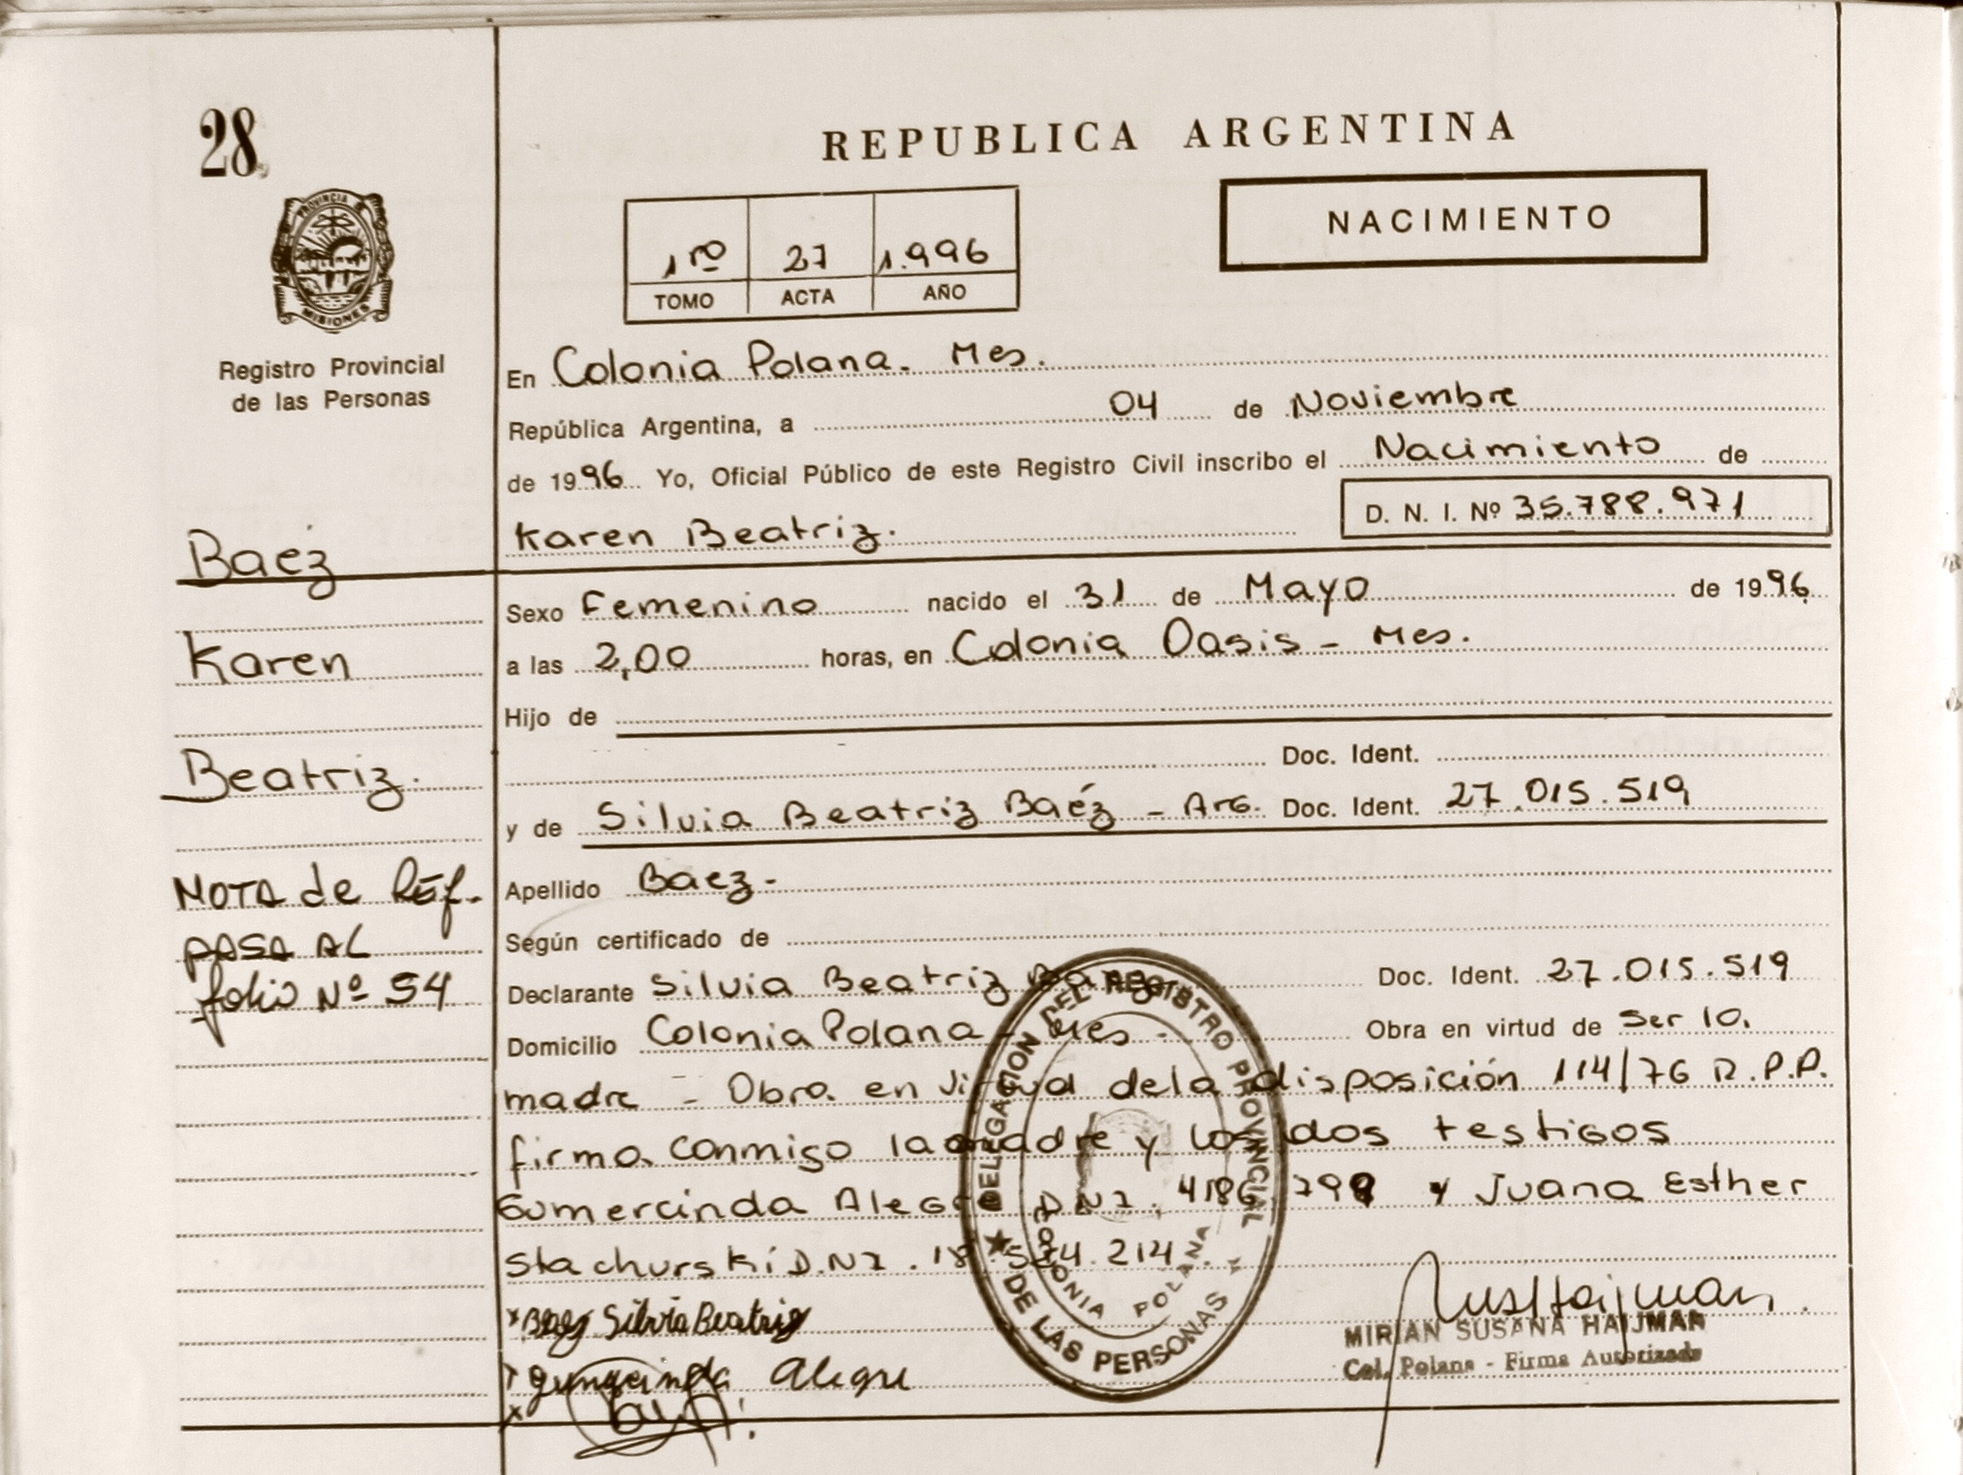 28
REPUBLICA ARGENTINA
NACIMIENTO
PROVINCIA DE
MISIONES
1ro 27 1.996
TOMO ACTA AÑO
Registro Provincial
de las Personas
En Colonia Polana. Mes.
República Argentina, a 04 de Noviembre
de 1996 Yo, Oficial Público de este Registro Civil inscribo el Nacimiento de
Karen Beatriz. D. N. I. Nº 35.788.971
Baéz
Karen
Beatriz.
Sexo Femenino nacido el 31 de Mayo de 1996.
a las 2,00 horas, en Colonia Oasis - Mes.
Hijo de
Doc. Ident.
y de Silvia Beatriz Baéz - Arg. Doc. Ident. 27.015.519
Apellido Baez.
Según certificado de
Declarante Silvia Beatriz Baez Doc. Ident. 27.015.519
Domicilio Colonia Polana - Mes - Obra en virtud de Ser lo.
madre - Obra en virtud dela disposición 114/76 R.P.P.
firma conmigo la madre y los dos testigos
Gumercinda Alegre D.N.I. 4186 799 y Juana Esther
Stachurski D.N.I. 18.574.214.
NOTA de Ref.
PASA AL
folio Nº 54
DELEGACION DEL REGISTRO PROVINCIAL
DE LAS PERSONAS
COLONIA POLANA
x Baez Silvia Beatriz
Alegre
MIRIAN SUSANA HAIJMAN
Col. Polana - Firma Autorizada